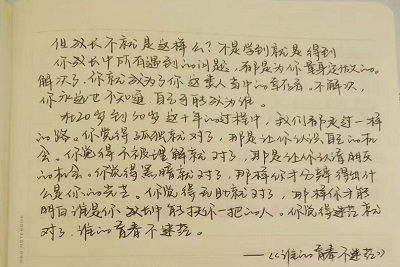 但成长不就是这样么？不是学到就是得到
你成长中所有遇到的问题，都是为你量身定做的。
解决了，你就成为了你这类人当中的幸存者，不解决，
你永远也不知道，自己可能成为谁。
在20岁到30岁这十年的过程中，我们都走过一样
的路。你觉得孤独就对了，那是让你认识自己的机
会。你觉得不被理解就对了，那是让你认清朋友
的机会。你觉得黑暗就对了，那样你才分辨得出什
么是你的光芒。你觉得无助就对了，那样你才能
明白谁是你成长中能扶你一把的人。你觉得迷茫就
对了，谁的青春不迷茫。
——《谁的青春不迷茫》